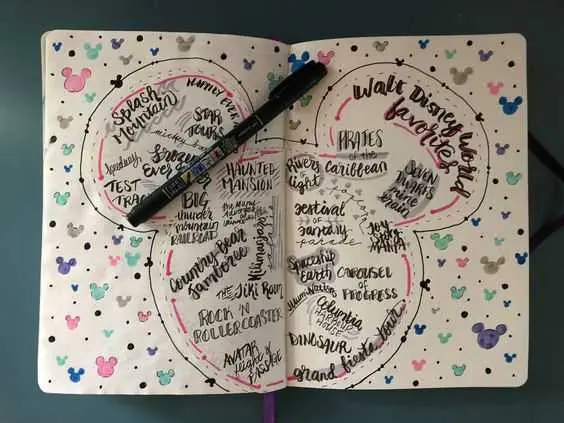 Walt Disney World
favorites
Splash
Mountain
HAPPILY EVER
STAR
TOURS
speedway
Frozen
Ever
TEST
TRAC
BIG
thunder
mountain
RAILROAD
HAUNTED
MANSION
the many
adventures
Country Bear
Jamboree
Kilimanjaro
THE Tiki Room
ROCK 'N'
ROLLERCOASTER
AVATAR
flight of
PASSAGE
PIRATES
of the
Caribbean
SEVEN
DWARFS
mine
train
Rivers
of
Light
festival
of
fantasy
parade
TOY
STORY
MANIA
Spaceship
Earth
CAROUSEL
of
PROGRESS
Columbia
HARBOUR
HOUSE
DINOSAUR
grand fiesta tour